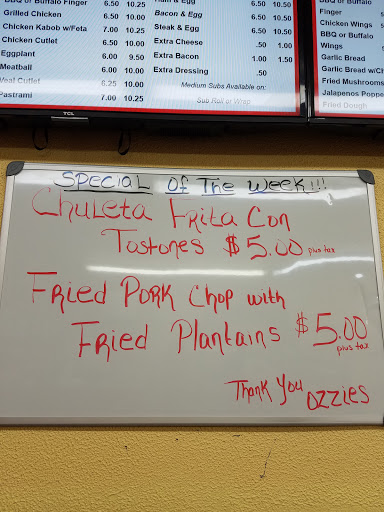 BBQ or Buffalo Finger 6.50 10.25
Grilled Chicken 6.50 10.25
Chicken Kabob w/Feta 7.00 10.25
Chicken Cutlet 6.50 10.00
Eggplant 6.00 9.50
Meatball 6.00 10.00
Veal Cutlet 6.25 10.00
Pastrami 7.00 10.25
& Egg 6.50 10.50
Bacon & Egg 6.50 10.50
Steak & Egg 6.50 10.50
Extra Cheese .50 1.00
Extra Bacon 1.00 1.50
Extra Dressing .50
Medium Subs Available on:
Sub Roll or Wrap
BBQ or Buffalo
Finger
Chicken Wings
BBQ or Buffalo
Wings
Garlic Bread
Garlic Bread w/Ch
Fried Mushrooms
Jalapenos Poppe
Fried Dough
TCL
SPECIAL OF THE WEEK!!!
Chuleta Frita Con
Tostones $5.00 plus tax
Fried Pork Chop with
Fried Plantains $5.00
plus tax
Thank You Ozzies